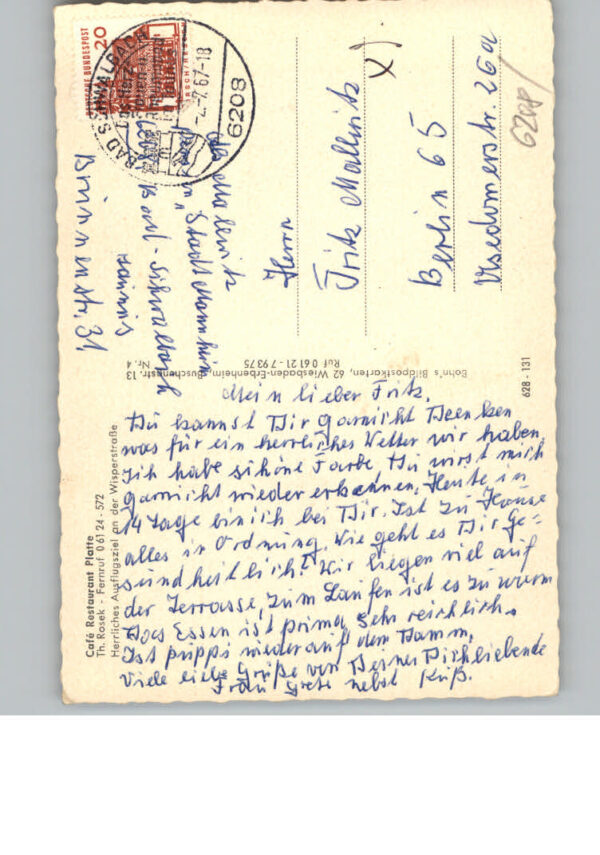 Mein lieber Fritz,
Du kannst Dir garnicht Deenken
was für ein herrliches Wetter wir haben,
Ich habe schöne Farbe, Du wirst mich
garnicht wieder erkennen, Heute in
14 Tage bin ich bei Dir. Ist zu Hause
alles in Ordnung. Wie geht es Dir Ge=
sundheitlich? Wir liegen viel auf
der Terrasse, zum Laufen ist es zu warm
Das Essen ist prima, sehr reichlich.
Ist puppi wieder auf dem Damm,
Viele liebe Grüße von Deiner Dichliebende
Frau Grete nebst Kuß.
Herrn
Fritz Mallwitz
Berlin 65
Usedomerstr. 26a
Mallwitz
"Stadt Mannheim
Bad-Schwalbach
Taunus
Brunnenstr. 31
DEUTSCHE BUNDESPOST
20
BAD SCHWALBACH
-7.67-18
6208
Bohn's Bildpostkarten, 62 Wiesbaden-Erbenheim, Buschungstr. 13
Ruf 0 61 21 - 7 93 75
Nr. 4
628 - 131
Café Restaurant Platte
Th. Rosek - Fernruf 0 61 24 - 572
Herrliches Ausflugsziel an der Wisperstraße